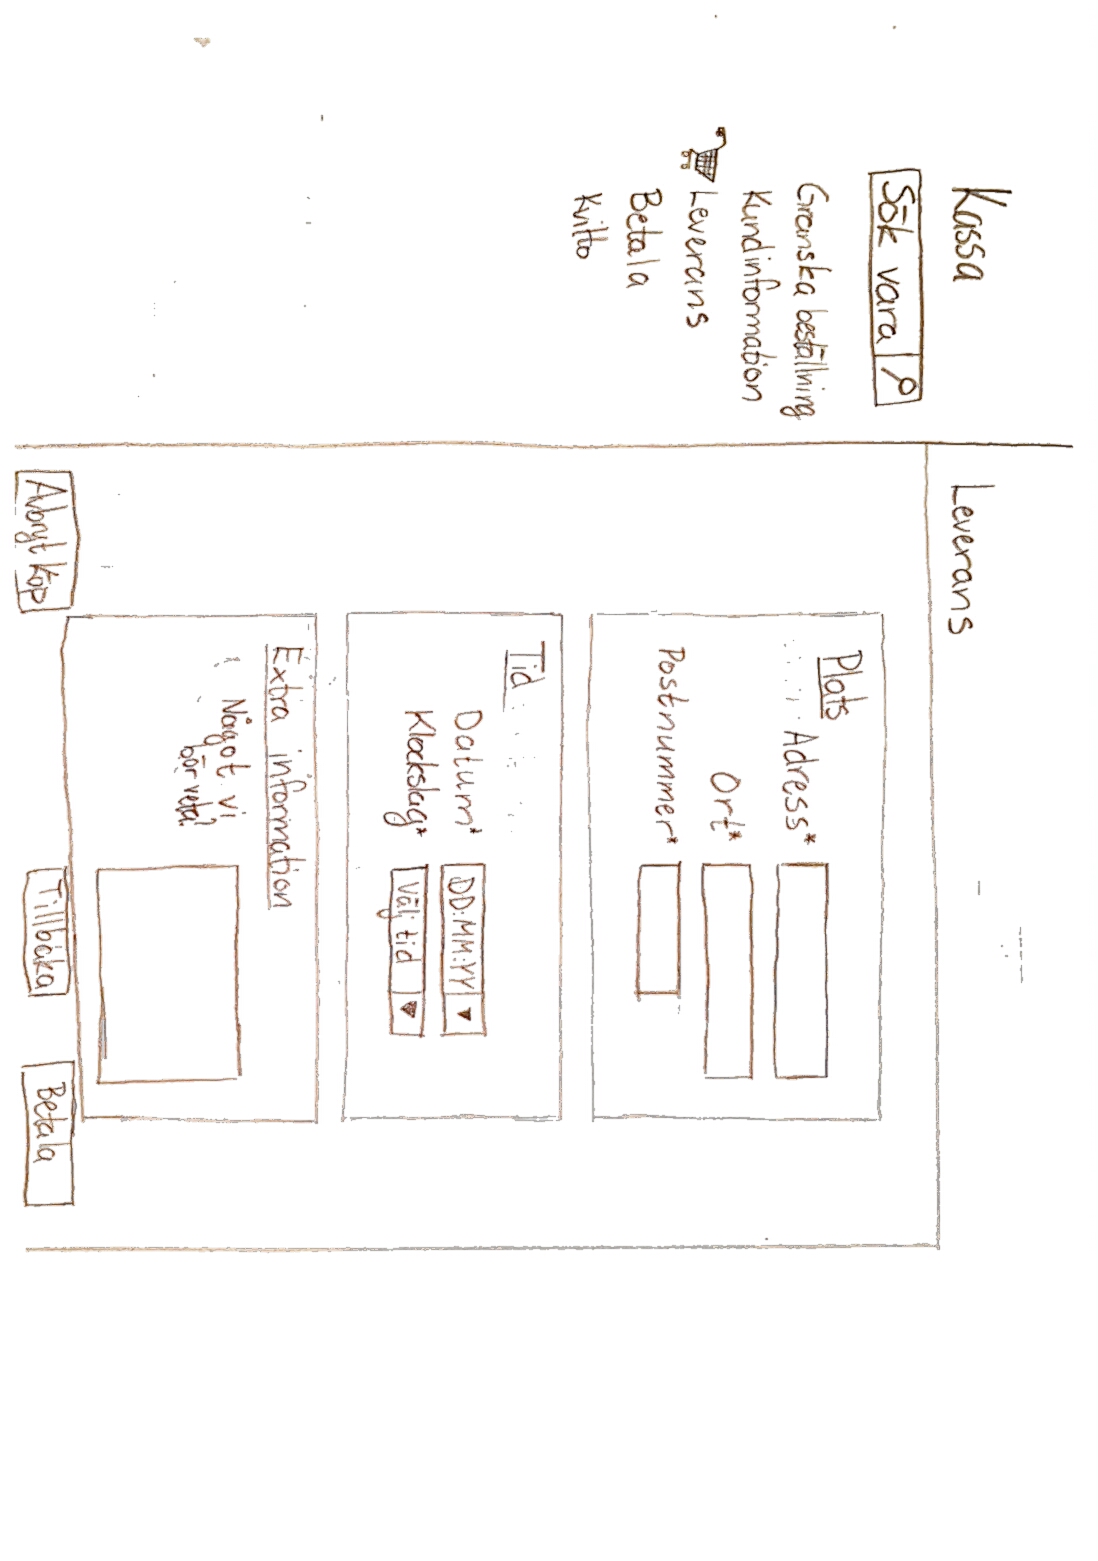 Kassa
Sök vara
Granska beställning
Kundinformation
Leverans
Betala
Kvitto
Leverans
Plats
Adress*
Ort*
Postnummer*
Tid
Datum*
DD:MM:YY
Klockslag*
Välj tid
Extra information
Något vi
bör veta?
Avbryt köp
Tillbaka
Betala